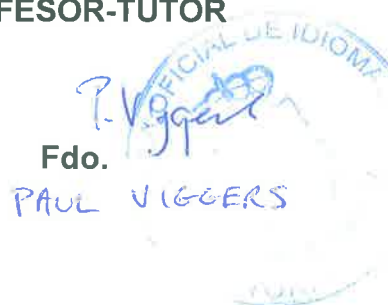 FESOR-TUTOR
OFICIAL DE IDIOMA
P. Viggers
Fdo.
PAUL VIGGERS